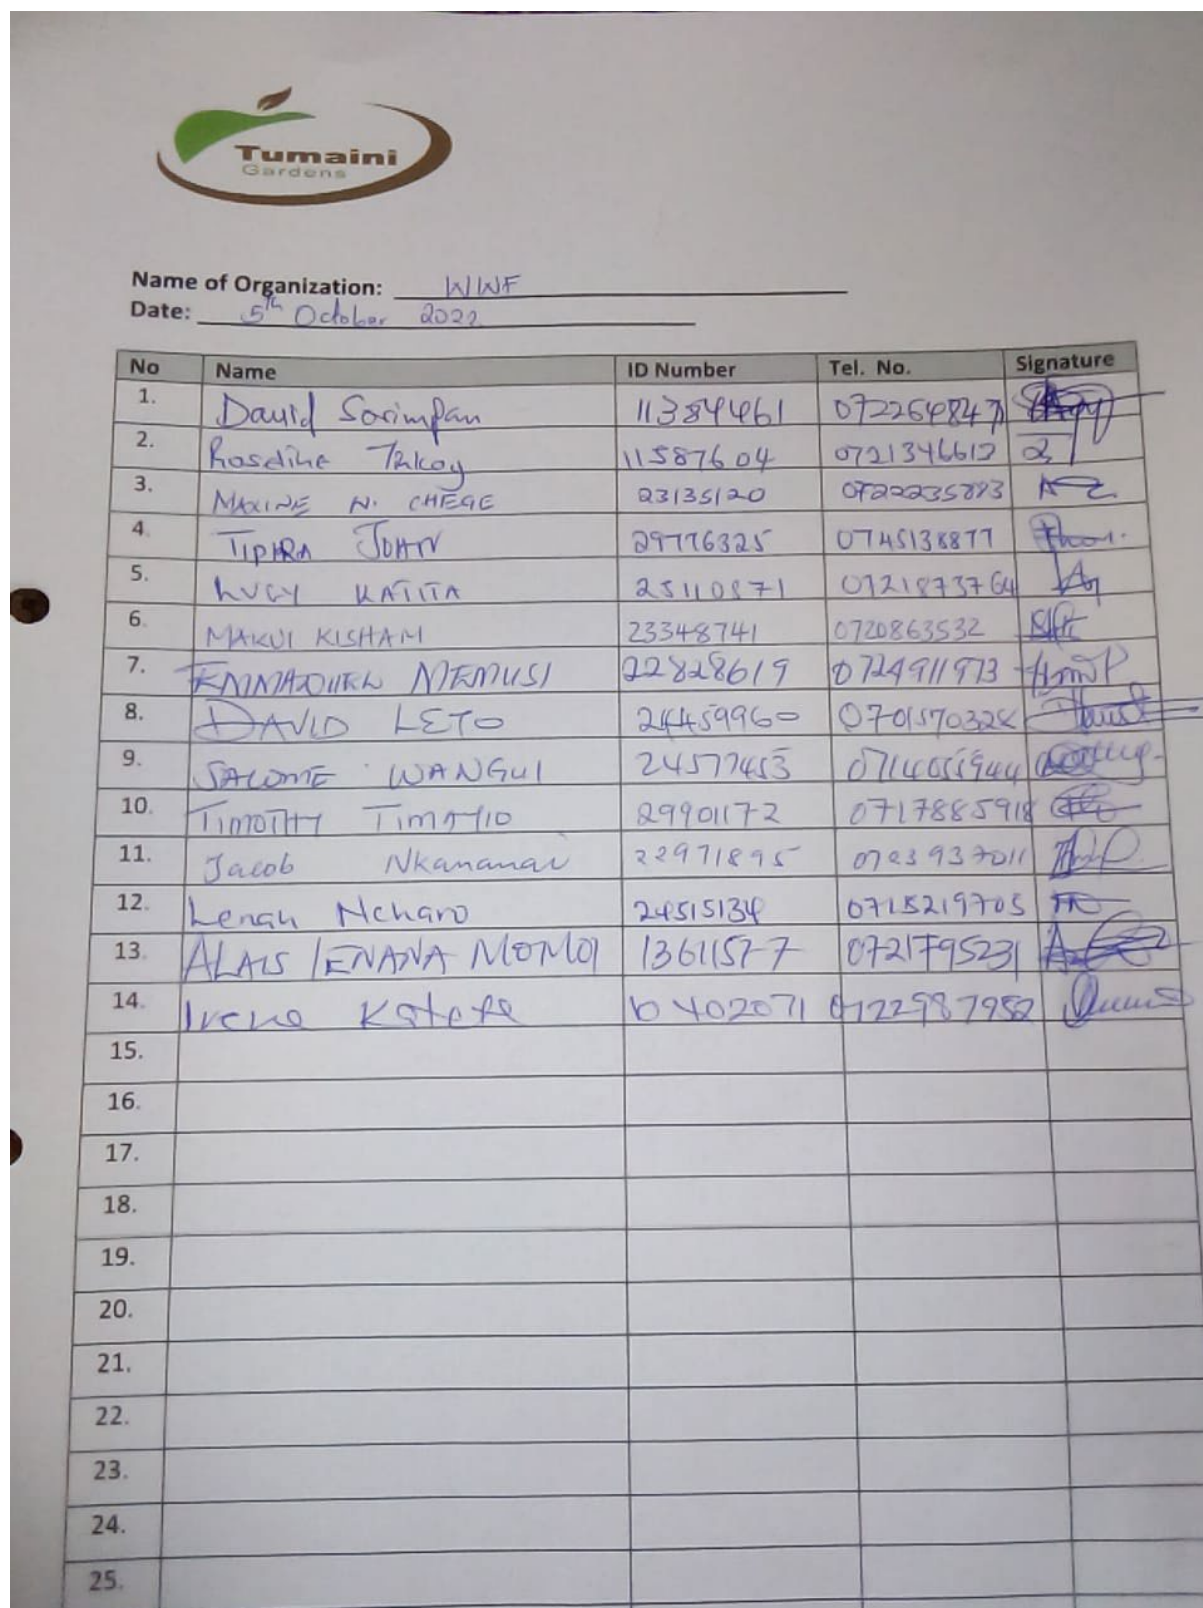 Tumaini
Gardens
Name of Organization: WWF
Date: 5th October 2022
No Name ID Number Tel. No. Signature
1. David Sorimpan 11384461 0722648471
2. Roseline 11587604 0721346612
3. MAXINE N. CHEGE 23135120
4. TIPIRA JOHN 29776325 0745138877
5. LUCY KATITA 25110871 0721873764
6. MAKUI KISHAM 23348741 0720863532
7. EMMANUEL MEMUSI 22828619 0724911973
8. DAVID LETO 24459960 070157032
9. SALOME WANGUI 24577453
10. TIMOTHY TIMAIIO 29901172 0717885918
11. Jacob Nkananai 22971895 0723937011
12. Lenah Ncharo 24515134 0715219705
13. ALAIS LENANA MOMOI 13611577 0721795231
14. Irene 0722987952
15.
16.
17.
18.
19.
20.
21.
22.
23.
24.
25.